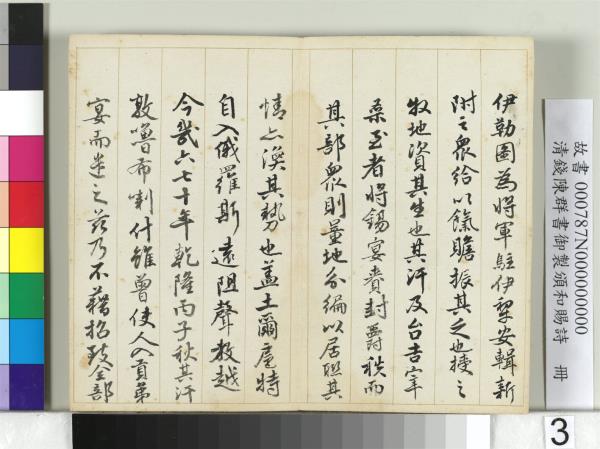 伊勒圖為將軍駐伊犂安輯新
附之眾給以餼贍振其乏也授之
牧地資其生也其汗及台吉宰
桑至者將錫宴賚封爵秩而
其部眾則量地分編以居聯其
情亦渙其勢也盖土爾扈特
自入俄羅斯遠阻聲教越
今幾六七十年乾隆丙子秋其汗
敦嚕布剌什雖曾使人入貢弟
宴而遣之茲乃不藉招致全部
故書 000787N000000000
清錢陳群書御製頒和賜詩 冊
3